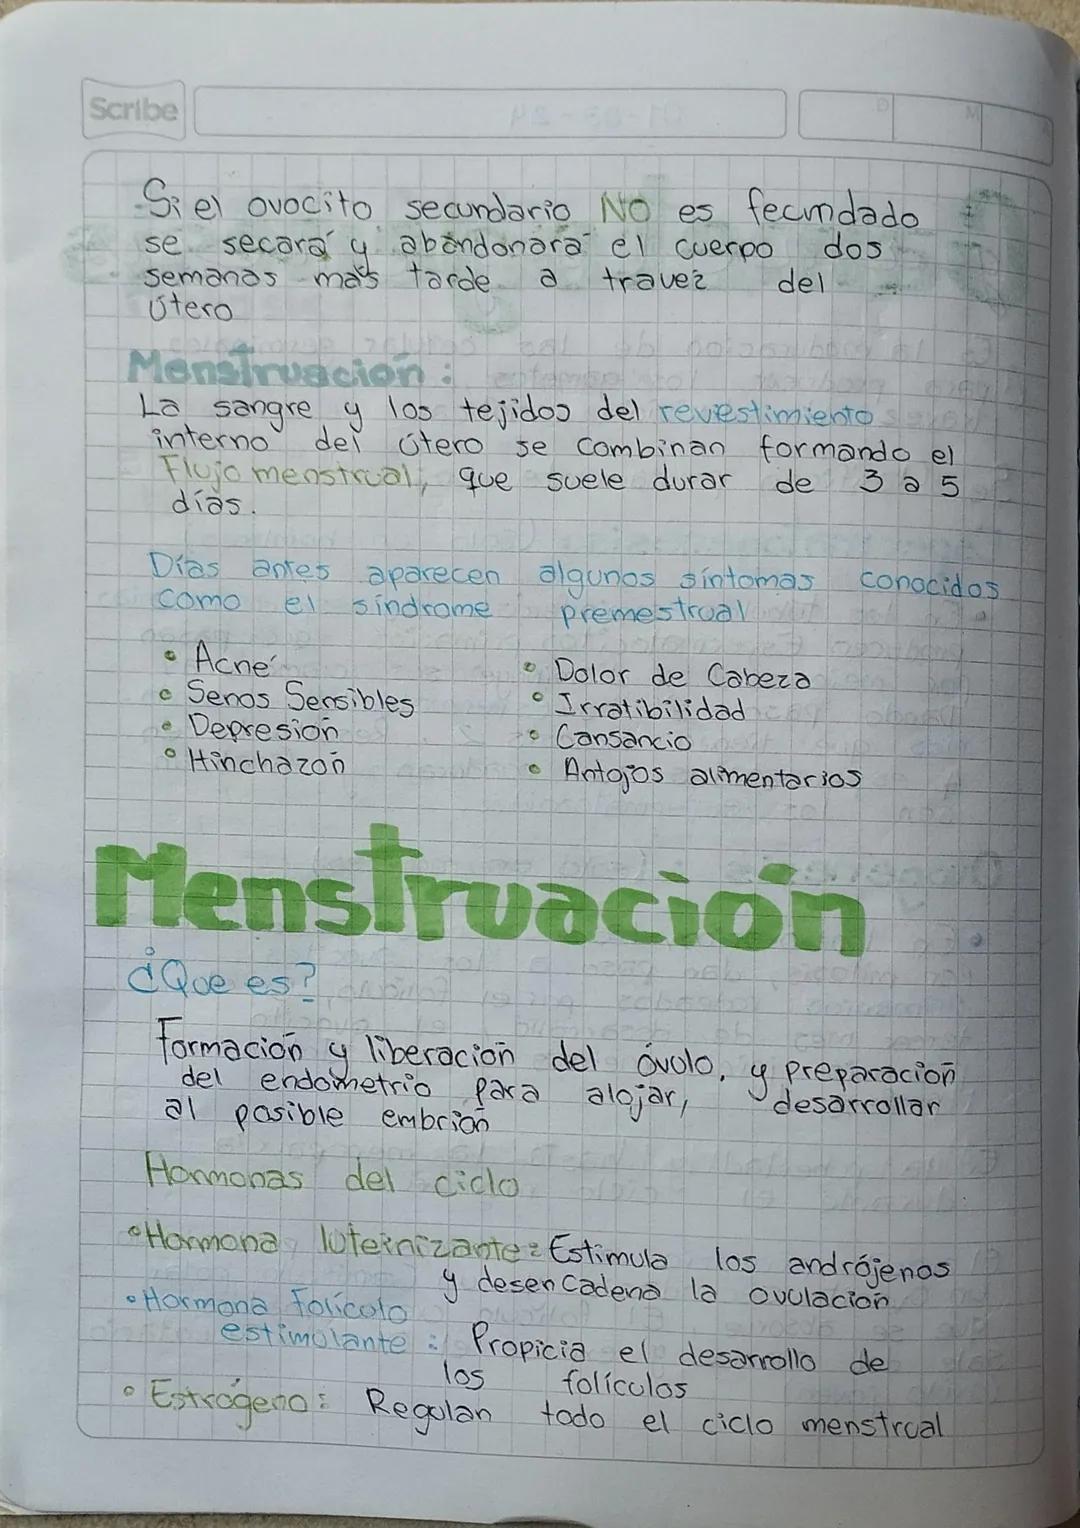 Scribe
Si el ovocito secundario NO es fecundado
se secará y abandonará el cuerpo dos
semanas más tarde a travez del
útero
Menstruación:
La sangre y los tejidos del revestimiento
interno del útero se combinan formando el
Flujo menstrual, que suele durar de 3 a 5
días.
Días antes aparecen algunos síntomas conocidos
como el síndrome premestrual
• Acné
• Senos Sensibles
• Depresión
• Hinchazón
• Dolor de Cabeza
• Irratibilidad
• Cansancio
• Antojos alimentarios
Menstruación
¿Que es?
Formación y liberación del óvulo, y preparación
del endometrio para alojar, desarrollar
al posible embrión
Hormonas del ciclo
• Hormona luteinizante: Estimula los andrójenos
y desencadena la ovulación
• Hormona Folículo
estimulante: Propicia el desarrollo de
los folículos
• Estrógeno: Regulan todo el ciclo menstrual